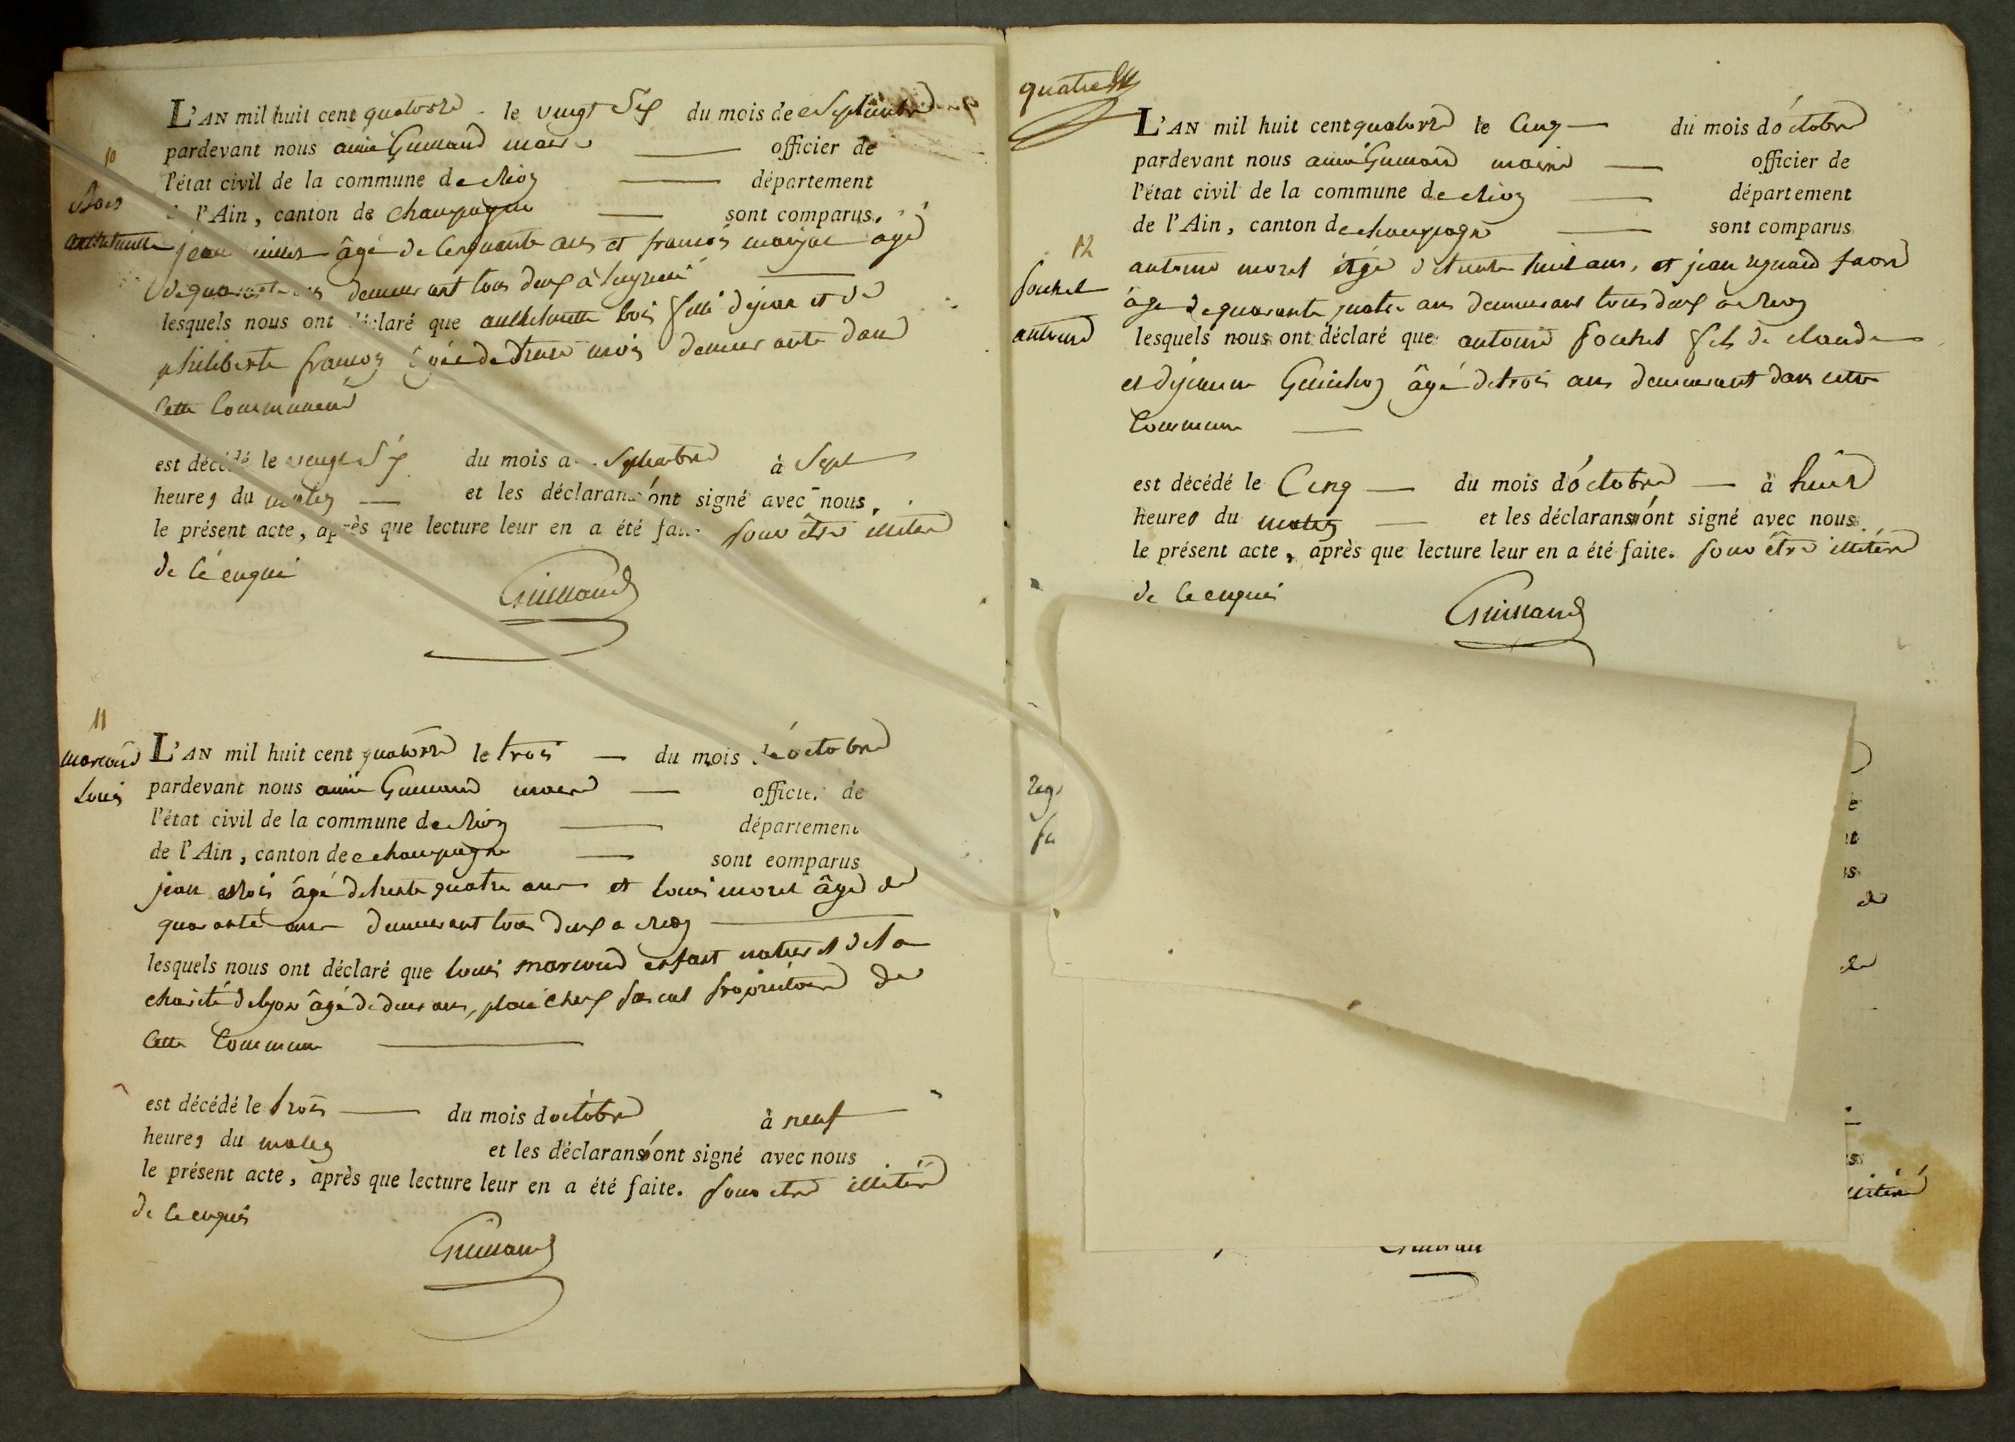 10
Bois
anthelmette
L'AN mil huit cent quatorze le vingt Six du mois de Septembre
pardevant nous aimé Guinand maire officier de
l'état civil de la commune de
département
de l'Ain, canton de champagne
sont comparus
jean âgé de Cinquante ans et francois âgé
de ans demeurant tous deux à
lesquels nous ont déclaré que anthelmette bois fille de jean et de
philiberte francoz âgée de mois demeurante dans
Cette Commune
est décédé le vingt Six du mois de Septembre à Sept
heures du matin et les déclarans ont signé avec nous
le présent acte, après que lecture leur en a été faite. pour être illitéré
de ce enquis
Guinand
11
marcoud
Louis
L'AN mil huit cent quatorze le trois du mois d'octobre
pardevant nous aimé Guinand maire officier de
l'état civil de la commune de
département
de l'Ain, canton de champagne
sont comparus
jean Bois âgé de trente quatre ans et Louis morel âgé de
quarante ans demeurant tous deux a
lesquels nous ont déclaré que Louis marcoud enfant naturel de la
charité de lyon âgé de deux ans, placé chez pascal propriétaire de
Cette Commune
est décédé le trois du mois d'octobre à neuf
heures du matin et les déclarans ont signé avec nous
le présent acte, après que lecture leur en a été faite. pour etre illitéré
de ce enquis
Guinand
quatre
12
fochet
antoine
L'AN mil huit cent quatorze le Cinq du mois d'octobre
pardevant nous aimé Guinand maire officier de
l'état civil de la commune de
département
de l'Ain, canton de champagne
sont comparus
antoine morel âgé de trente huit ans, et jean favre
âgé de quarante quatre ans demeurant tous deux a
lesquels nous ont déclaré que antoine fochet fils de claude
et de jeanne âgé de trois ans demeurant dans cette
Commune
est décédé le Cinq du mois d'octobre à huit
heures du matin et les déclarans ont signé avec nous
le présent acte, après que lecture leur en a été faite. pour être illitéré
de ce enquis
Guinand